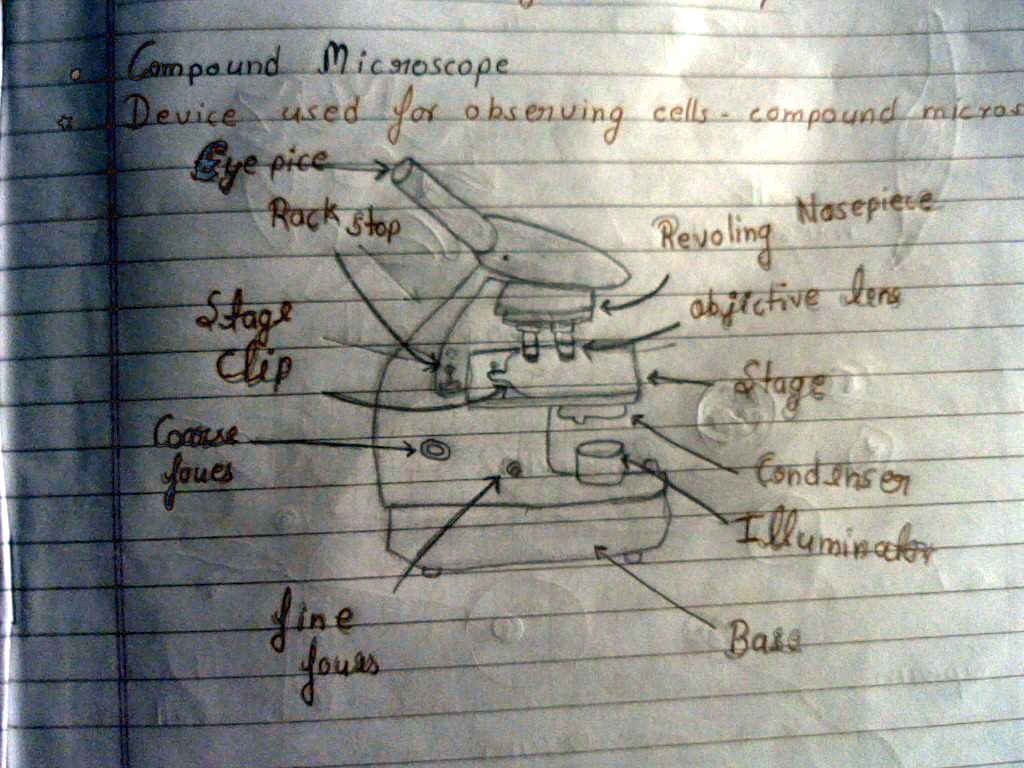 Compound Microscope
Device used for observing cells - compound micros
Eye pice
Rack stop
Revoling Nosepiece
Stage
Clip
objictive lens
Stage
Coarse
foues
Condenser
Illuminator
fine
foues
Base